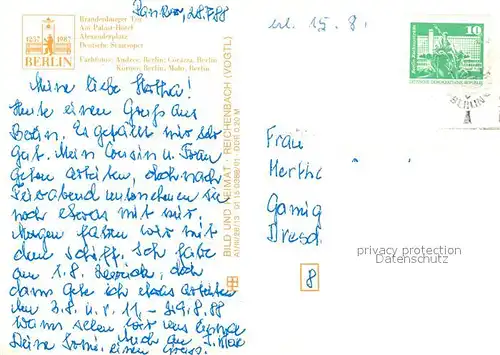 Pankow, 28.7.88
Brandenburger Tor
Am Palast-Hotel
Alexanderplatz
Deutsche Staatsoper
1237 1987
BERLIN
Farbfotos: Andree, Berlin; Görzna, Berlin
Kämper, Berlin; Mahr, Berlin
Meine liebe Hertha!
Heute einen Gruß aus
Berlin. Es gefällt mir sehr
gut. Mein Cousin u. Frau
gehen arbeiten, doch nach
Feierabend unternehmen sie
noch etwas mit mir.
Morgen fahren wir mit
dem Schiff. Ich fahre
am 1.8. doch
dann gehe ich etwas arbeiten
im 3.8. u. v. 11. - 29.8.88
Wann sehen wir uns
Deine einen
BILD UND HEIMAT REICHENBACH (VOGTL)
erl. 15. 8.
10
DEUTSCHE DEMOKRATISCHE REPUBLIK
BERLIN
Frau
Hertha
Gamig
Dresd.
privacy protection
Datenschutz
8